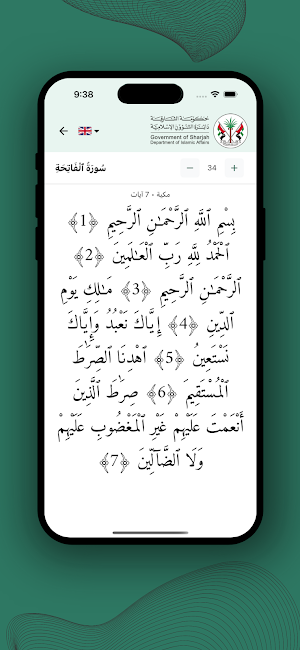 9:38
حكومة الشارقة
دائرة الشؤون الإسلامية
Government of Sharjah
Department of Islamic Affairs
سُورَةُ ٱلْفَاتِحَةِ
− 34 +
مكية - 7 آيات
بِسْمِ ٱللَّهِ ٱلرَّحْمَـٰنِ ٱلرَّحِيمِ ﴿1﴾
ٱلْحَمْدُ لِلَّهِ رَبِّ ٱلْعَـٰلَمِينَ ﴿2﴾
ٱلرَّحْمَـٰنِ ٱلرَّحِيمِ ﴿3﴾ مَـٰلِكِ يَوْمِ
ٱلدِّينِ ﴿4﴾ إِيَّاكَ نَعْبُدُ وَإِيَّاكَ
نَسْتَعِينُ ﴿5﴾ ٱهْدِنَا ٱلصِّرَٰطَ
ٱلْمُسْتَقِيمَ ﴿6﴾ صِرَٰطَ ٱلَّذِينَ
أَنْعَمْتَ عَلَيْهِمْ غَيْرِ ٱلْمَغْضُوبِ عَلَيْهِمْ
وَلَا ٱلضَّآلِّينَ ﴿7﴾